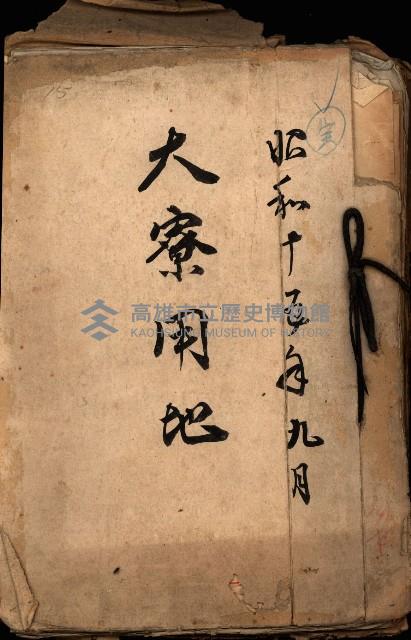 昭和十五年九月
大寮用地
15
高雄市立歷史博物館
KAOHSIUNG MUSEUM OF HISTORY